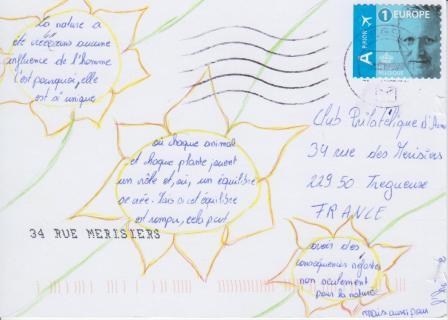 La nature a
été créée sans aucune
influence de l'homme
c'est pourquoi, elle
est si unique
1 EUROPE
A PRIOR
BELGIQUE
où chaque animal
et chaque plante, jouent
un rôle et, où, un équilibre
se crée. Mais si cet équilibre
est rompu, cela peut
Club Philatélique d'
34 rue des Merisiers
22950 Tregueux
FRANCE
34 RUE MERISIERS
avoir des
conséquences néfastes
non seulement
pour la nature
mais aussi pour